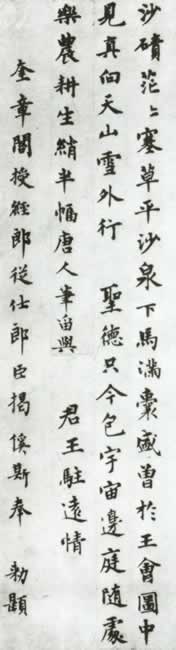 沙磧茫々塞草平沙泉下馬滿囊盛曽於王會圖中
見真向天山雪外行 聖德只今包宇宙邊庭隨處
樂農耕生綃半幅唐人筆留與 君王駐遠情
奎章閣授經郎從仕郎臣揭傒斯奉 勑題